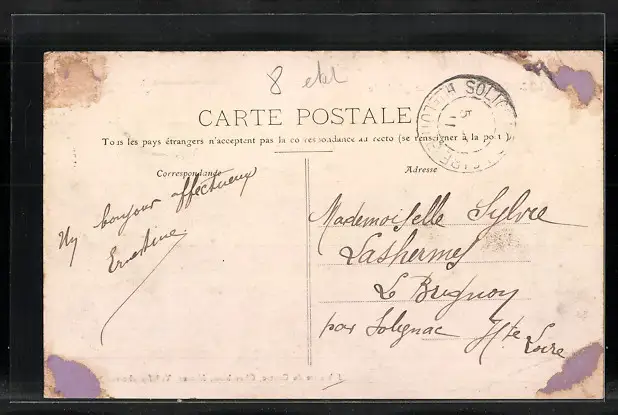 8 etat
CARTE POSTALE
Tous les pays étrangers n'acceptent pas la correspondance au recto (se renseigner à la poste)
Correspondance
Adresse
Un bonjour affectueux
Ernestine
Mademoiselle Sylvie
Lashermes
Le Brignon
par Solignac Hte
Loire